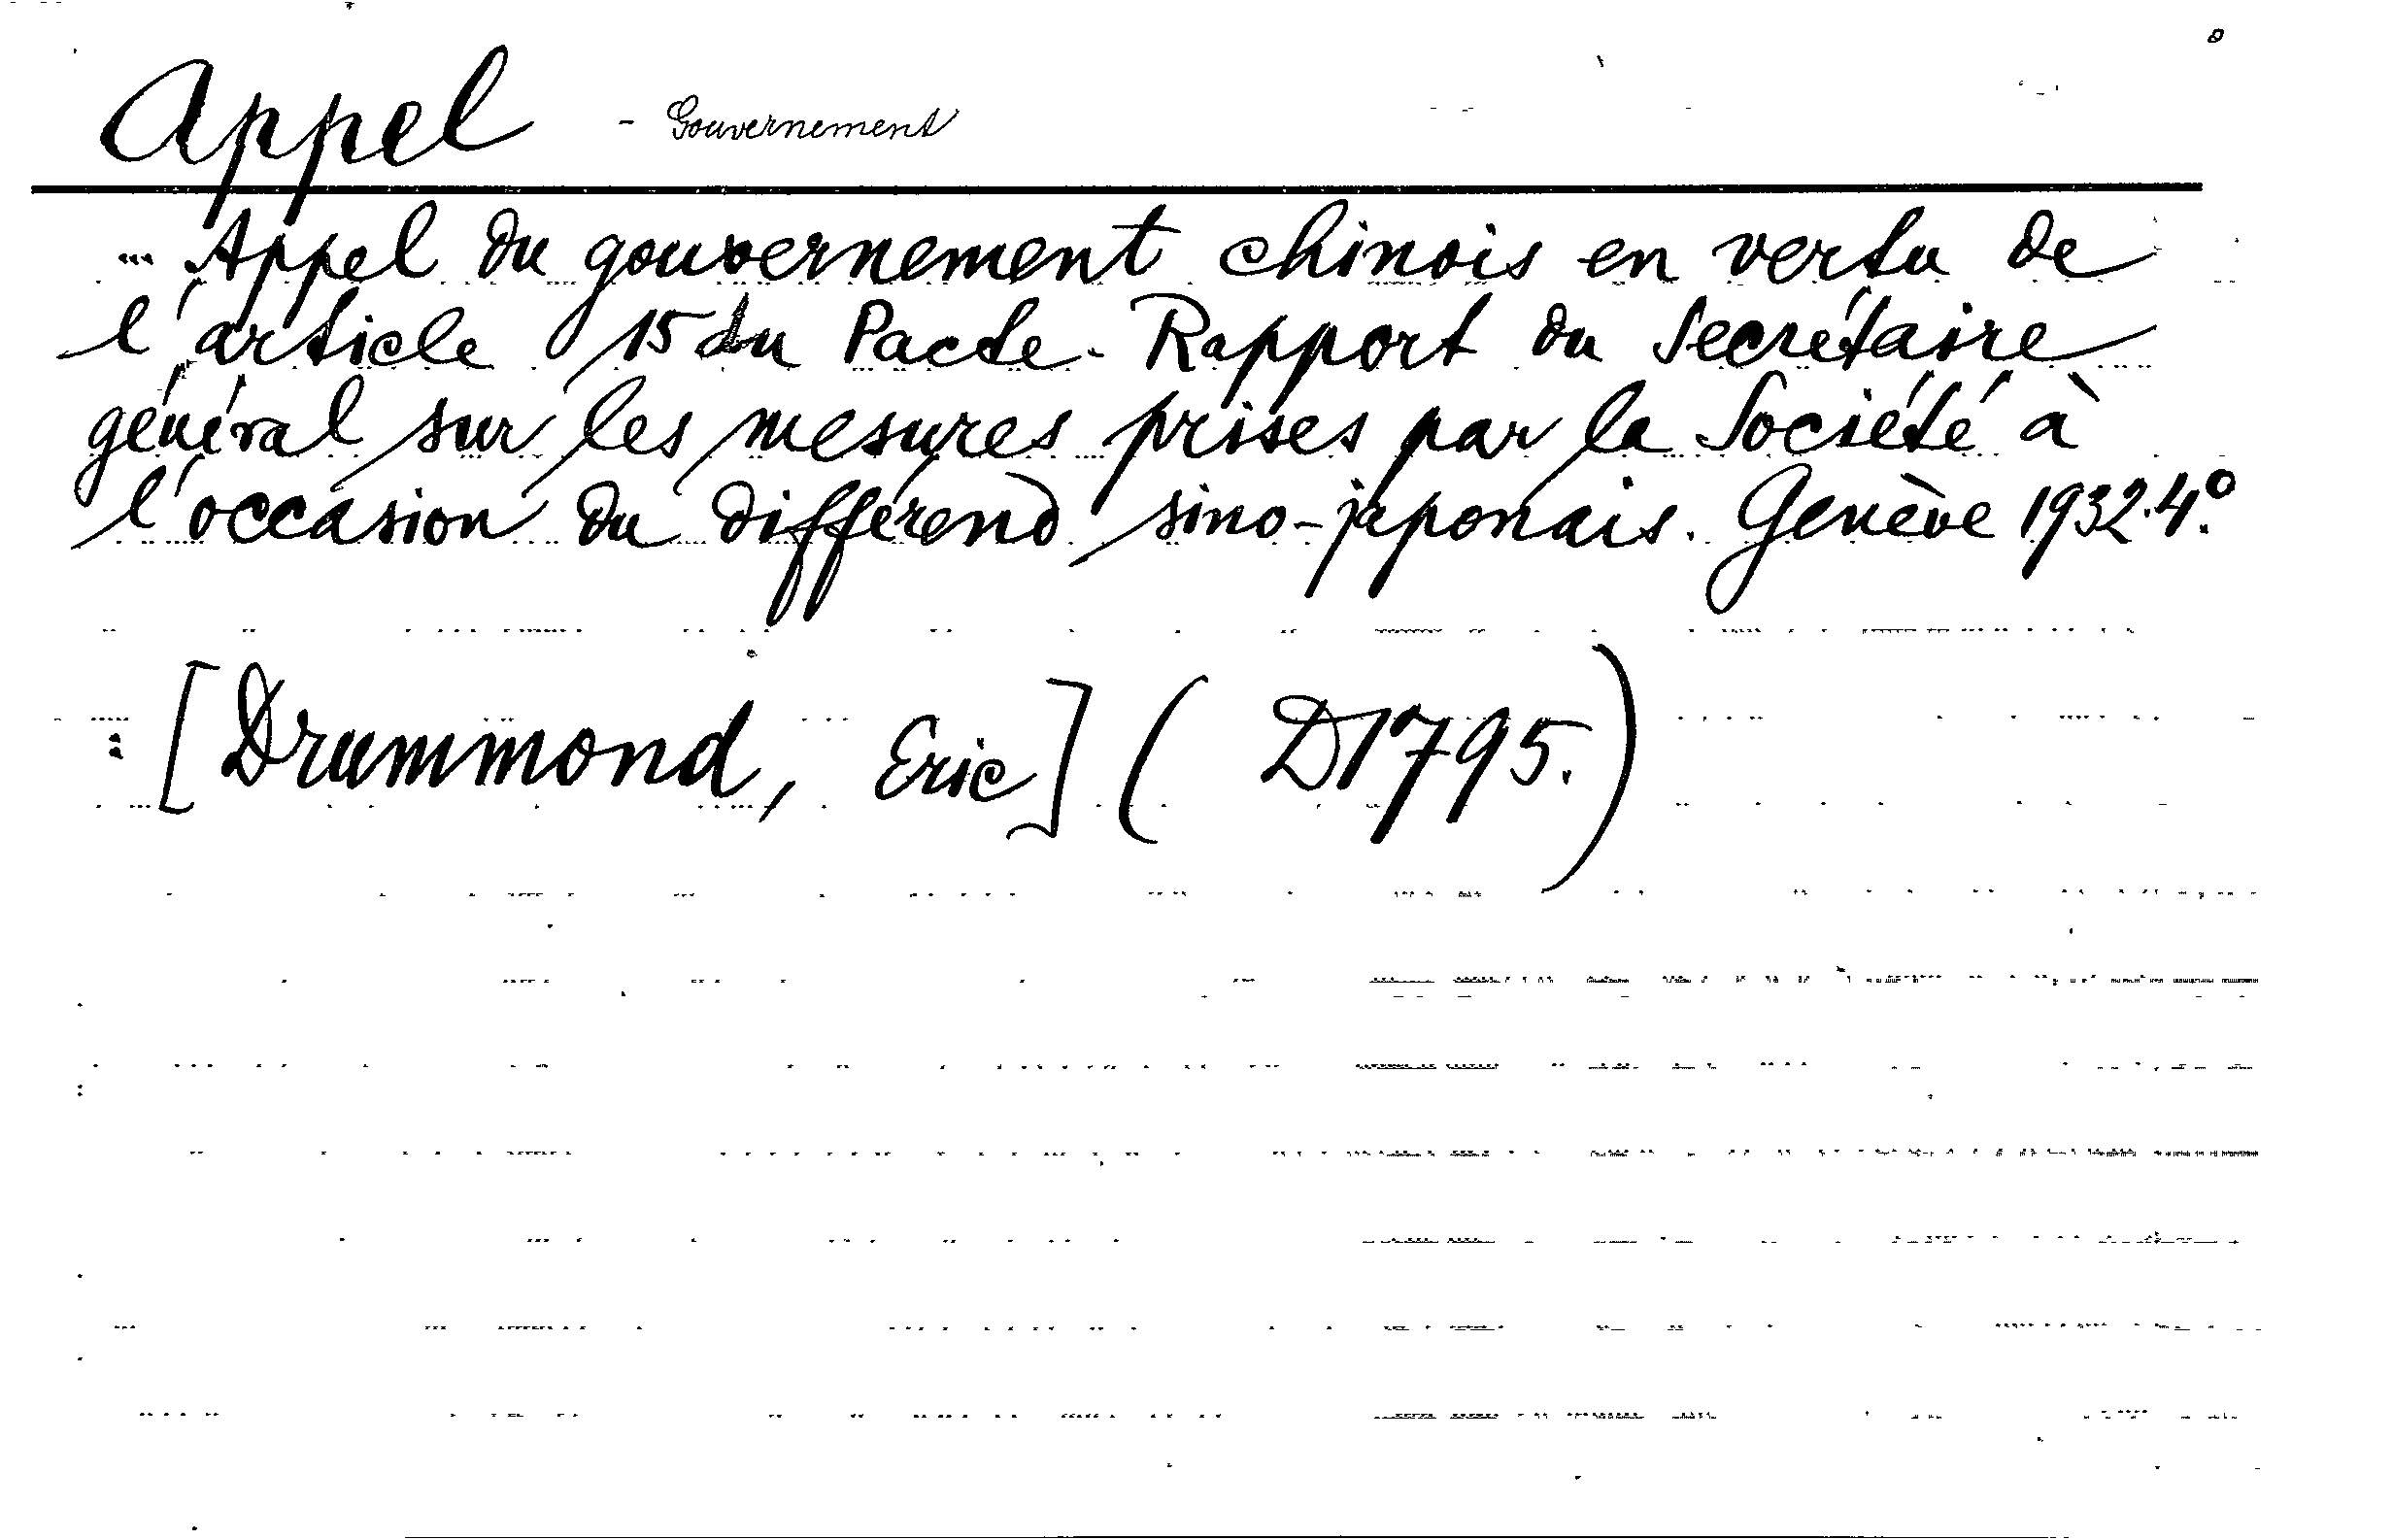 Appel - Gouvernement
Appel du gouvernement chinois en vertu de
l'article 15 du Pacte. Rapport du Secrétaire
général sur les mesures prises par la Société à
l'occasion du différend sino-japonais. Genève 1932. 4º.
[Drummond, Eric] ( D1795.)